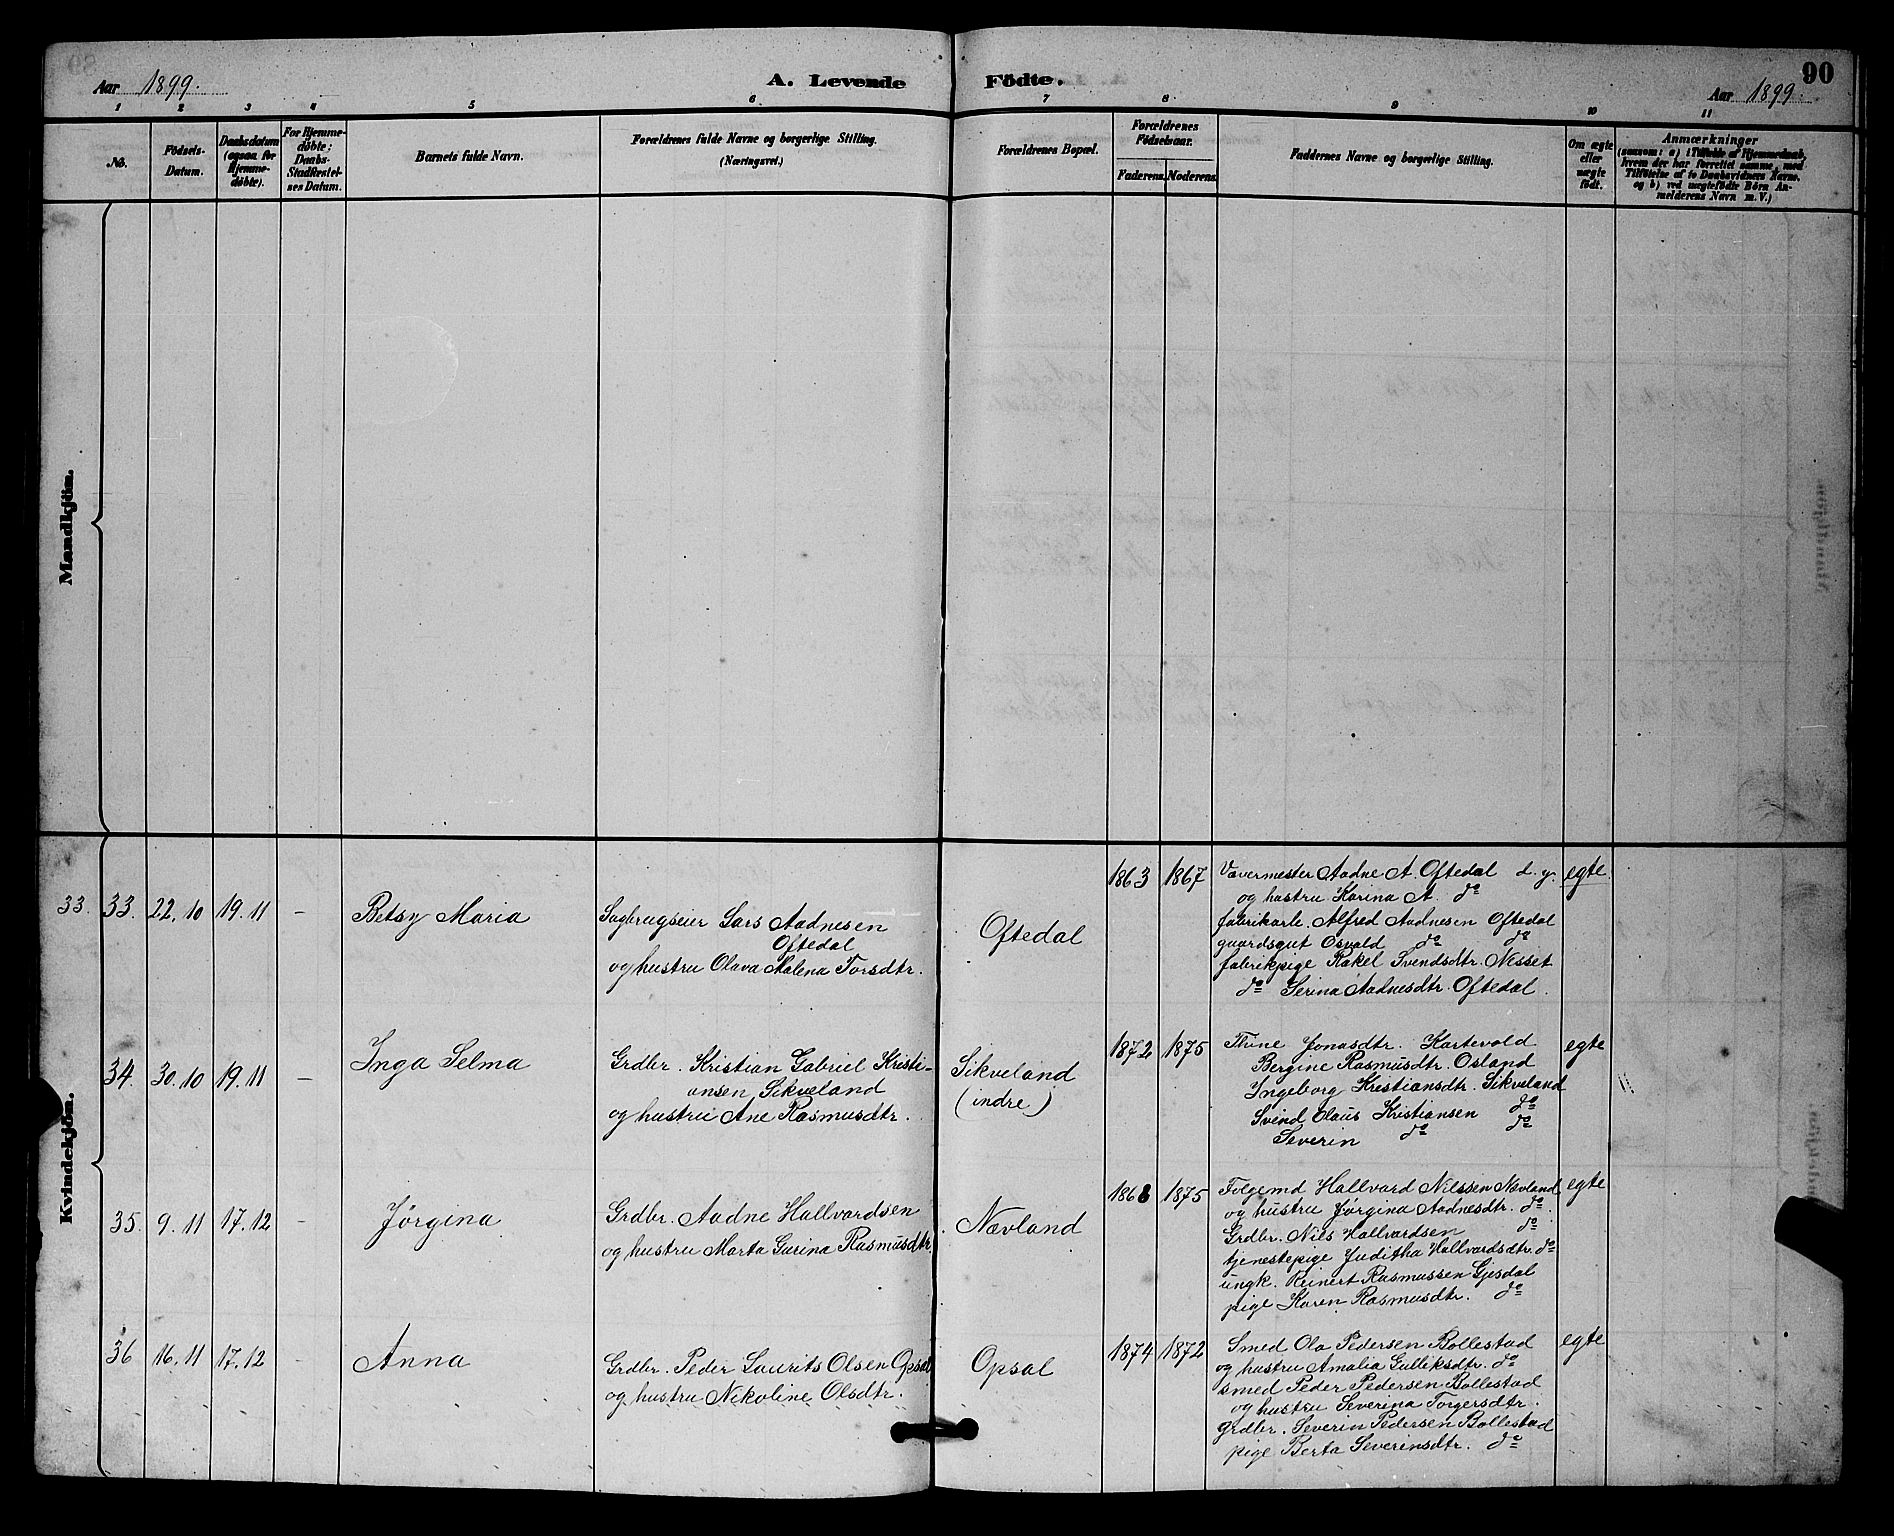 Aar 1899.
A. Levende Födte.
Aar 1899.
90
1 2 3 4 5 6 7 8 9 10 11
No.
Födsels-Datum.
Daabsdatum (ogsaa for Hjemme-döbte).
For Hjemme-döbte; Daabs-Stadfestel-ses Datum.
Barnets fulde Navn.
Forældrenes fulde Navne og borgerlige Stilling.
(Næringsvei.)
Forældrenes Bopæl.
Forældrenes Födselsaar.
Faderens.
Moderens.
Faddernes Navne og borgerlige Stilling.
Om ægte eller uægte födt.
Anmærkninger
(saasom: a) i Tilfælde af Hjemmedaab,
hvem der har forrettet samme, med
Tilföielse af to Daabsvidners Navne,
og b) ved uægtefödte Börn An-
melderens Navn m. V.)
Mandkjön.
Kvindekjön.
33. 33. 22.10 19.11 – Betsy Maria
Sagbrugseier Lars Aadnesen
Oftedal
og hustru Olava Malena Torsdtr.
Oftedal
1863 1867
Vævermester Aadne A. Oftedal d. y.
og hustru Karina A. do
fabrikarb. Alfred Aadnesen Oftedal
gaardsgut Osvald do do
fabrikpige Rakel Svendsdtr. Nesset
do Serina Aadnesdtr. Oftedal.
egte.
34. 30.10 19.11 – Inga Selma
Grdbr. Kristian Gabriel Kristi-
ansen Sikveland
og hustru Ane Rasmusdtr.
Sikveland
(indre)
1872 1875
Thine Jonasdtr. Kartevold
Bergine Rasmusdtr. Osland
Ingeborg Kristiansdtr. Sikveland
Svend Olaus Kristiansen do
Severin do do
egte
35. 9.11 17.12 – Jørgina
Grdbr. Aadne Hallvardsen
og hustru Marta Gurina Rasmusdtr.
Nævland
1868 1875
Folgemd Hallvard Nilssen Nævland
og hustru Jørgina Aadnesdtr. do.
Grdbr. Nils Hallvardsen do
tjenestepige Juditha Hallvardsdtr. do
ungk. Reinert Rasmussen Gjesdal
pige Karen Rasmusdtr. do
egte
36 16.11 17.12 – Anna
Grdbr. Peder Laurits Olsen Opsal
og hustru Nikoline Olsdtr.
Opsal
1874 1872
Smed Ola Pedersen Bollestad
og hustru Amalia Gulliksdtr. do
smed Peder Pedersen Bollestad
og hustru Severina Torgersdtr.
Grdbr. Severin Pedersen Bollestad
pige Berta Severinsdtr. do
egte